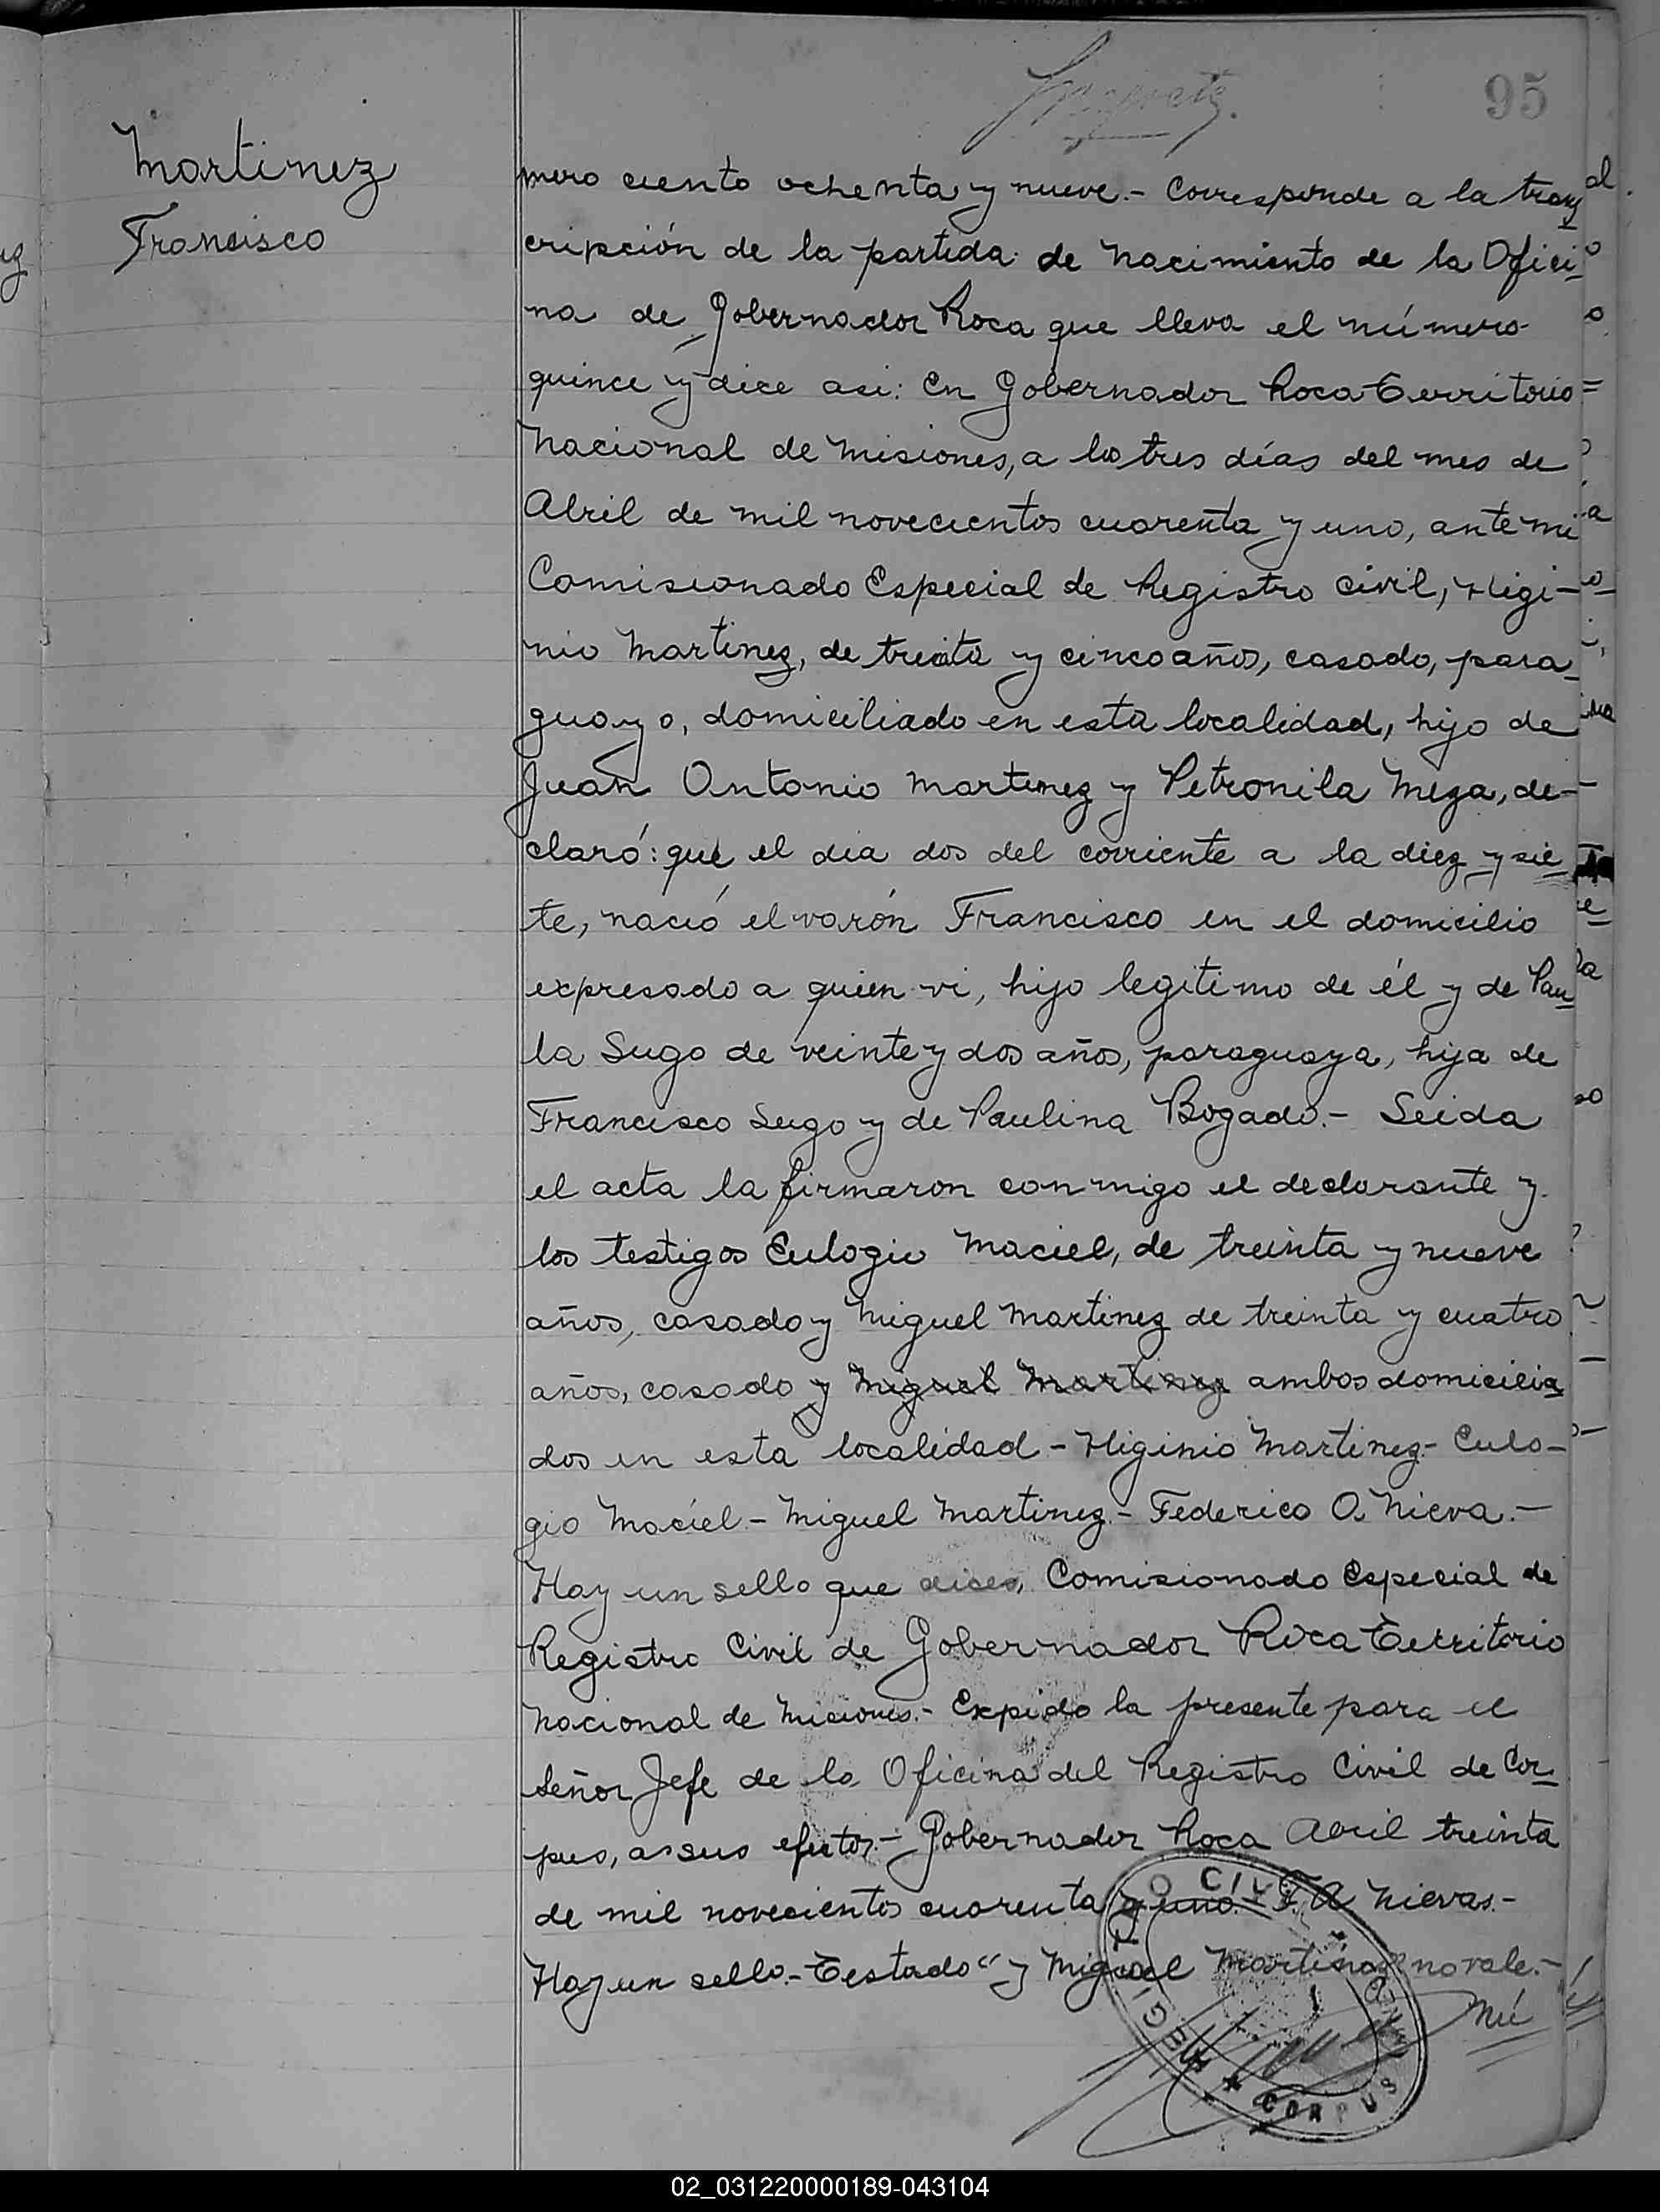 95
Martinez
Francisco
mero ciento ochenta y nueve.- Corresponde a la trans
cripción de la partida de Nacimiento de la Ofici
na de Gobernador Roca que lleva el número
quince y dice asi: En Gobernador Roca Territorio
Nacional de Misiones, a los tres días del mes de
Abril de mil novecientos cuarenta y uno, ante mi
Comisionado Especial de Registro Civil, Higi-
nio Martinez, de treinta y cinco años, casado, para
guayo, domiciliado en esta localidad, hijo de
Juan Antonio Martinez y Petronila Meza, de-
claró: que el dia dos del corriente a la diez y sie
te, nació el varón Francisco en el domicilio
expresado a quien vi, hijo legitimo de él y de Pau
la Lugo de veinte y dos años, paraguaya, hija de
Francisco Lugo y de Paulina Bogado.- Leida
el acta la firmaron conmigo el declarante y
los testigos Eulogio Maciel, de treinta y nueve
años, casado y Miguel Martinez de treinta y cuatro
años, casado y Miguel Martinez ambos domicilia
dos en esta localidad - Higinio Martinez.- Eulo-
gio Maciel.- Miguel Martinez.- Federico A. Nieva.-
Hay un sello que dice, Comisionado Especial de
Registro Civil de Gobernador Roca Territorio
Nacional de Misiones.- Expido la presente para el
señor Jefe de la Oficina del Registro Civil de Cor
pus, a sus efectos.- Gobernador Roca Abril treinta
de mil novecientos cuarenta y uno.- F. A Nievas.-
Hay un sello.- Testado "y Miguel Martinez" no vale.-
Nú
REGISTRO CIVIL
CORPUS
02_031220000189-043104